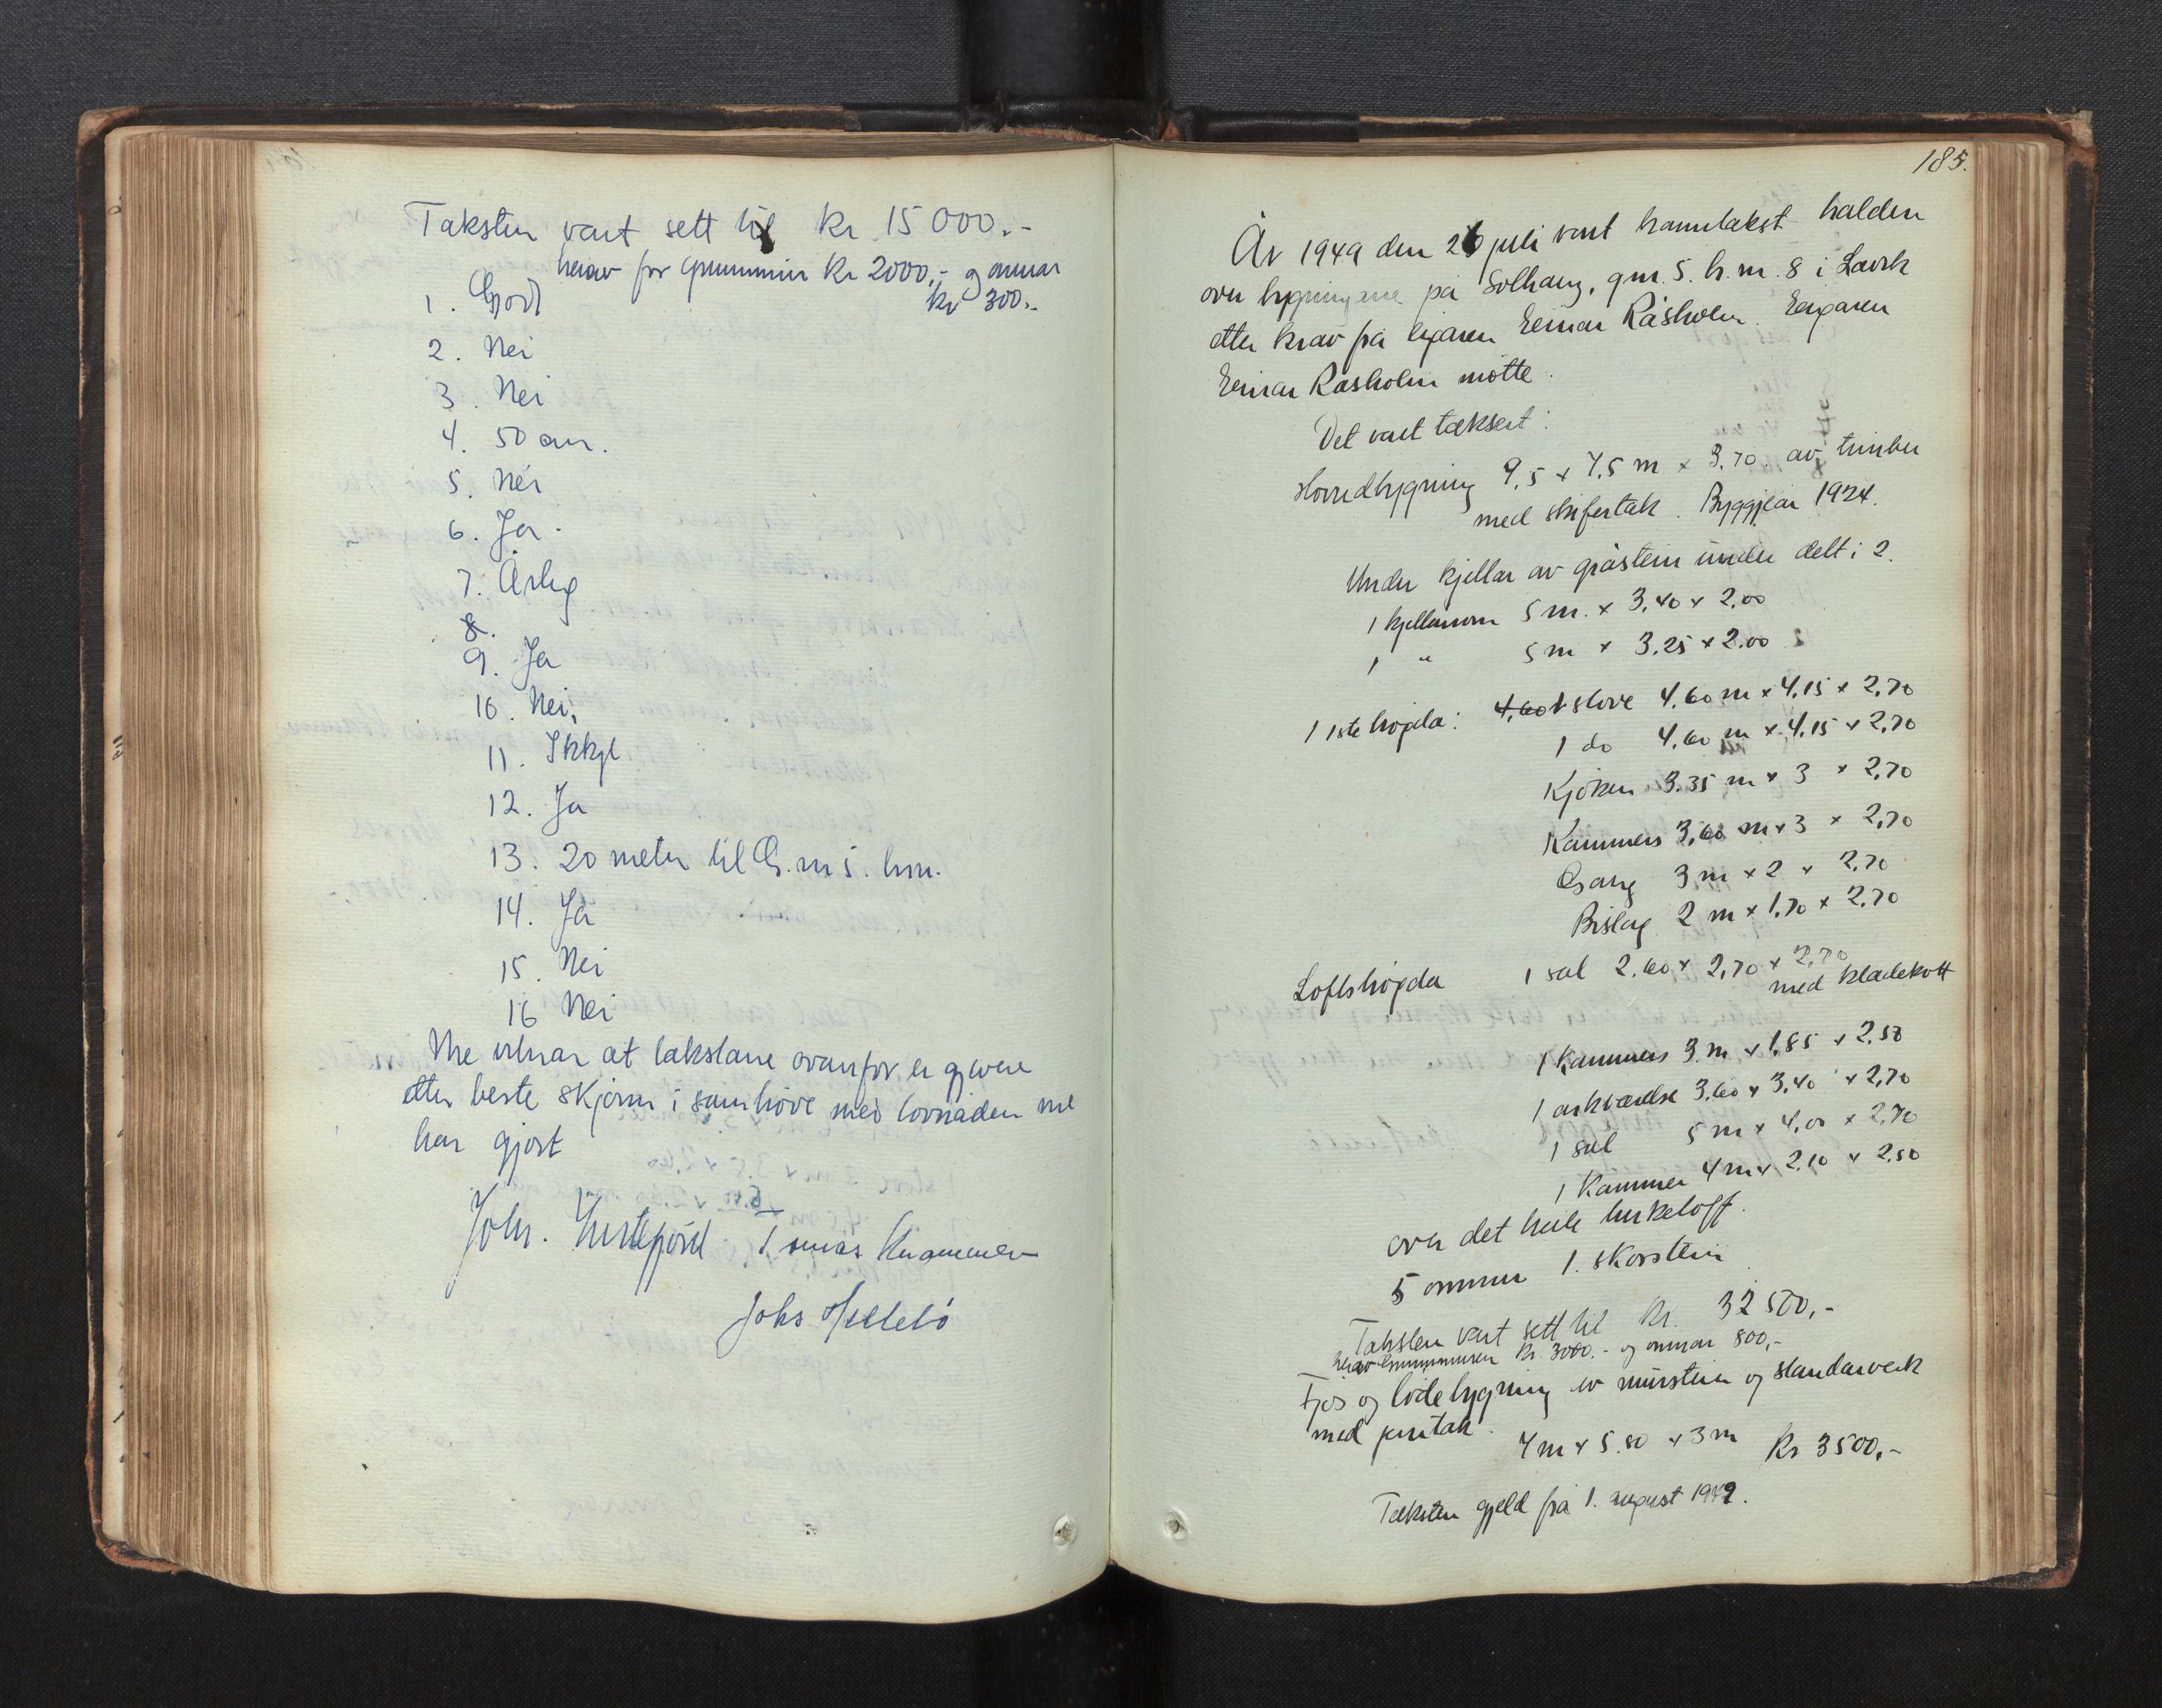 Taksten vart sett til kr 15 000.-
herav for grunnmur kr 2000,- og omnar
kr 300.-
1. Godt
2. Nei
3. Nei
4. 50 cm.
5. Nei
6. Ja.
7. Årleg
8.
9. Ja
10. Nei,
11. Ikkje
12. Ja
13. 20 meter til G.nr 5. bnr.
14. Ja
15. Nei
16 Nei
Me vitnar at takstane ovanfor er gjevne
etter beste skjønn i samhøve med lovnaden me
har gjort
Johs.
Johs
185.
År 1949 den 26 juli vart branntakst halden
over bygningane på Solhaug, gnr. 5. br.nr. 8 i Lavik
etter krav frå eigaren Einar Råsholm. Eigaren
Einar Råsholm møtte.
Det vart taksert:
Hovudbygning 9,5 x 7,5 m x 3,70 av timber
med skifertak. Byggjeår 1924.
Under kjellar av gråstein under delt i 2.
1 kjellarrom 5 m. x 3,40 x 2,00
1 " 5 m x 3.25 x 2.00
1 1ste høgda: 4,60 1 stove 4,60 m x 4,15 x 2,70
1 do 4,60 m x 4,15 x 2,70
Kjøken 3.35 m x 3 x 2,70
Kammers 3,60 m x 3 x 2,70
Gang 3 m x 2 x 2,70
Bislag 2 m x 1,70 x 2,70
Loftshøgda 1 sal 2,60 x 2,70 x 2,70
med kladekott
1 Kammers 3 m x 1,85 x 2,50
1 arkværelse 3,60 x 3,40 x 2,70
1 sal 5 m x 4,00 x 2,70
1 Kammer 4 m x 2,10 x 2,50
over det heile turkeloft.
5 omnar 1. skorstein
Taksten vart sett til kr. 32 500,-
herav Grunnmuren kr. 3000.- og omnar 800,-
Fjøs og lødebygning av murstein og standarverk
med
7 m x 5.80 x 3 m kr 3500,-
Taksten gjeld frå 1. august 1949.